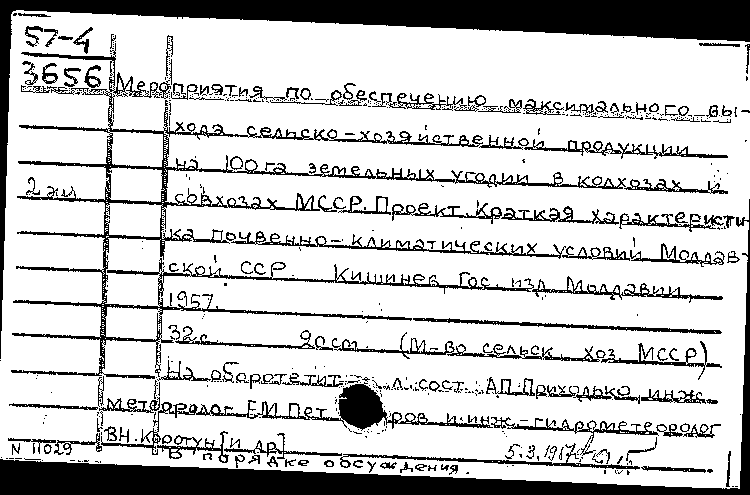 57-4
3656 Мероприятия по обеспечению максимального вы-
хода сельско-хозяйственной продукции
на 100 га земельных угодий в колхозах и
2 экз совхозах МССР. Проект. Краткая характеристи-
ка почвенно-климатических условий Молдав-
ской ССР. Кишинев, Гос. изд. Молдавии,
1957.
32 с. 20 см. (М-во сельск. хоз. МССР)
На обороте тит. л. сост. А.П. Приходько, инж.
метеоролог Е.М. Пет ров и инж.-гидрометеоролог
В.Н. Коротун [и др]
N 11029 В порядке обсуждения.